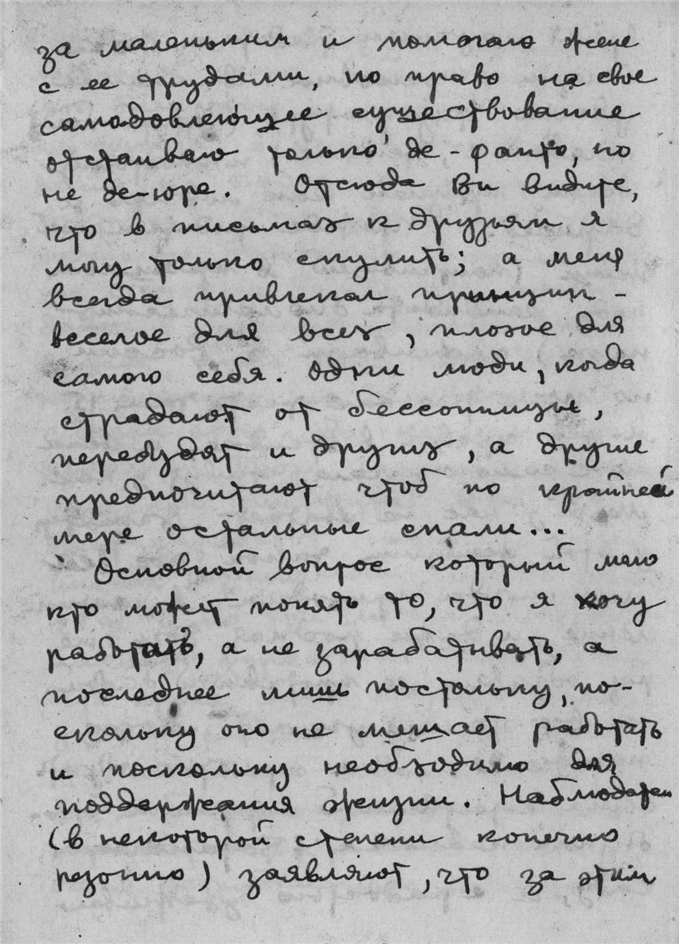 за маленьким и помогаю жене
с ее трудами, но право на свое
самодовлеющее существование
отстаиваю только де-факто, но
не де-юре. Отсюда Вы видите,
что в письмах к друзьям я
могу только скулить; а меня
всегда привлекал принцип -
веселое для всех, плохое для
самого себя. Одни люди, когда
страдают от бессонницы,
перебудят и других, а другие
предпочитают чтоб по крайней
мере остальные спали...
Основной вопрос который мало
кто может понять то, что я хочу
работать, а не зарабатывать, а
последнее лишь постольку, по-
скольку оно не мешает работать
и поскольку необходимо для
поддержания жизни. Наблюдатели
(в некоторой степени конечно
резонно) заявляют, что за этим